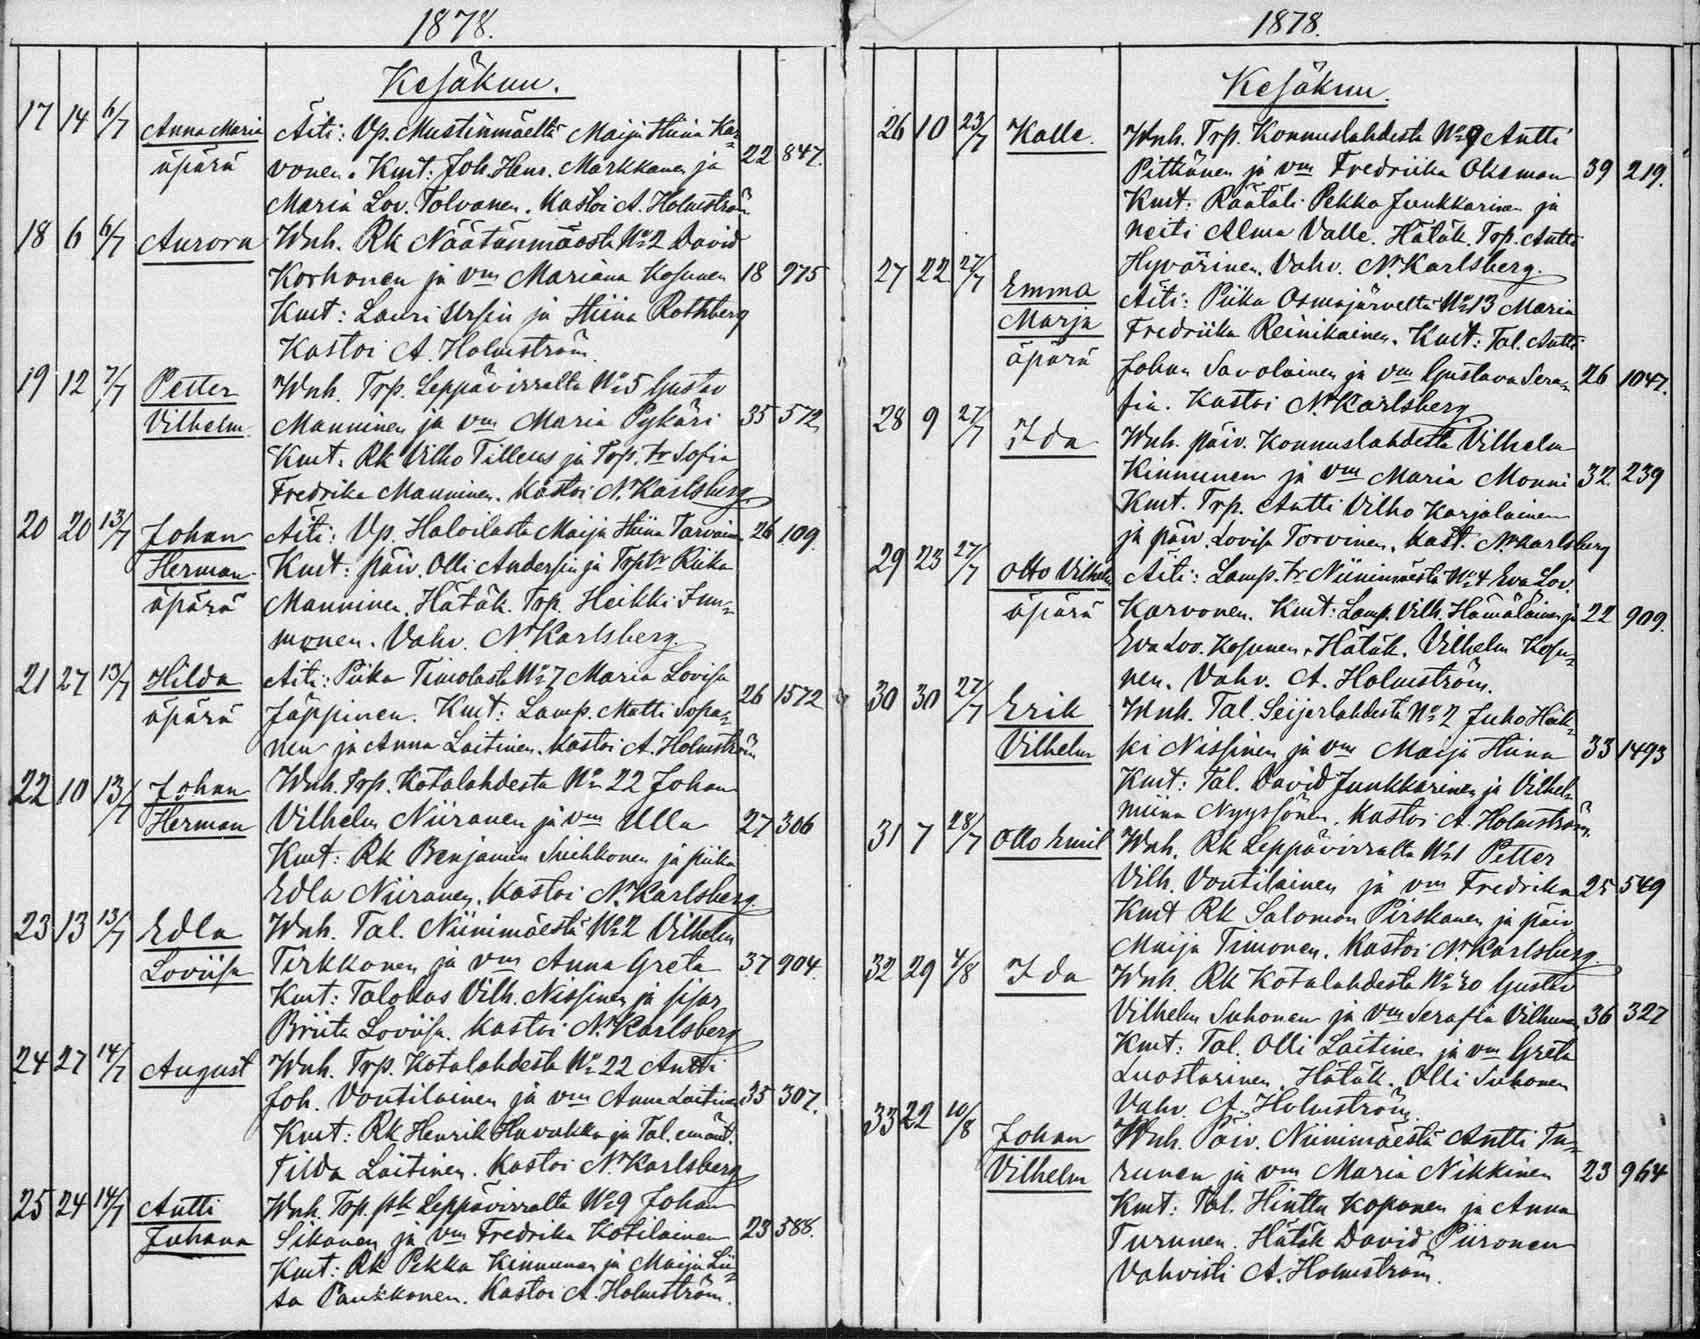 1878.
Kesäkuu.
17 14 6/7 Anna Maria Äiti: Vp. Mustinmäeltä Maija Stiina Kar-
äpärä vonen. Kmt: Joh. Henr. Markkanen ja 22 847.
Maria Lov. Tolvanen. Kastoi A. Holmström
18 6 6/7 Aurora Wnh. Rk Näätänmaasta No 2 David
Korhonen ja vm Mariana Kosunen 18 975
Kmt: Lauri Ursin ja Stiina Rothberg
Kastoi A. Holmström.
19 12 7/7 Petter Wnh. Trp. Leppävirralta No 5 Gustav
Vilhelm Manninen ja vm Maria Pykäri 35 572.
Kmt. Rk Vilho Tilleus ja Trp. tr Sofia
Fredrika Manninen. Kastoi N. Karlsberg
20 20 13/7 Johan Äiti: Vp. Haloilasta Maija Stiina Tarvainen 26 109.
Herman Kmt: päiv. Olli Andersin ja Trptr Riika
äpärä Manninen. Hätäk. Trp. Heikki Im-
monen. Vahv. N. Karlsberg.
21 27 13/7 Hilda Äiti: Piika Timolasta No 7 Maria Lovisa
äpärä Jäppinen. Kmt: Lamp. Matti Sopa- 26 1572
nen ja Anna Laitinen. Kastoi A. Holmström
22 10 13/7 Johan Wnh. Trp. Kotalahdesta No 22 Johan
Herman Vilhelm Niiranen ja vm Ulla 27 306
Kmt: Rk Benjamin Suihkonen ja piika
Edla Niiranen. Kastoi N. Karlsberg.
23 13 13/7 Edla Wnh. Tal. Niinimäestä No 2 Vilhelm
Loviisa Tirkkonen ja vm Anna Greta 37 904.
Kmt: Talokas Vilh. Nissinen ja sisar
Briita Loviisa. Kastoi N. Karlsberg
24 27 14/7 August Wnh. Trp. Kotalahdesta No 22 Antti
Joh. Voutilainen ja vm Anna Laitinen 35 307.
Kmt: Rk Henrik Havukka ja Tal. emänt.
Tilda Laitinen. Kastoi N. Karlsberg
25 24 14/7 Antti Wnh. Trp. psk Leppävirralta No 9 Johan
Juhana Sikanen ja vm Fredrika Kotilainen 23 588.
Kmt: Rk Pekka Kinnunen ja Maija Lii-
sa Paukkonen. Kastoi A. Holmström.
1878.
Kesäkuu.
26 10 23/7 Kalle. Wnh. Trp. Konnuslahdesta No 9 Antti
Pitkänen ja vm Fredriika Oksman 39 219.
Kmt: Räätäli Pekka Junkkarinen ja
neiti Alma Valle. Hätäk. Trp. Antti
Hyvärinen. Vahv. N. Karlsberg.
27 22 27/7 Emma Äiti: Piika Osmajärveltä No 13 Maria
Marja Fredriika Reinikainen. Kmt: Tal. Antti
äpärä Johan Savolainen ja vm Gustava Sera- 26 1047.
fia. Kastoi N. Karlsberg
28 9 27/7 Ida Wnh. päiv. Konnuslahdesta Vilhelm
Kinnunen ja vm Maria Monni 32 239
Kmt. Trp. Antti Vilho Karjalainen
ja päiv. Lovisa Torvinen. Kast. N. Karlsberg
29 23 27/7 Otto Vilhelm Äiti: Lamp. tr Niinimäestä No 4 Eva Lov.
äpärä Karvonen. Kmt: Lamp. Vilh. Hämäläinen ja 22 909.
Eva Lov. Kosunen. Hätäk. Vilhelm Kosu-
nen. Vahv. A. Holmström.
30 30 27/7 Erik Wnh. Tal. Seijerlahdesta No 2 Juho Heik-
Vilhelm ki Nissinen ja vm Maija Stiina 33 1493
Kmt: Tal. David Junkkarinen ja Vilhel-
miina Nyyssönen. Kastoi A. Holmström.
31 7 28/7 Otto Emil Wnh. Rk Leppävirralta No 1 Petter
Vilh. Voutilainen ja vm Fredrika 25 549
Kmt Rk Salomon Pirskanen ja päiv
Maija Timonen. Kastoi N. Karlsberg.
32 29 4/8 Ida Wnh. Rk Kotalahdesta No 20 Gustav
Vilhelm Suhonen ja vm Serafia Vilhunen 36 327
Kmt: Tal. Olli Laitinen ja vm Greta
Luostarinen. Hätäk. Olli Suhonen
Vahv. A. Holmström.
33 22 10/8 Johan Wnh. Päiv. Niinimäestä Antti Tu-
Vilhelm runen ja vm Maria Nikkinen 23 964
Kmt: Tal. Hinttu Koponen ja Anna
Turunen. Hätäk David Piironen
Vahvisti A. Holmström.